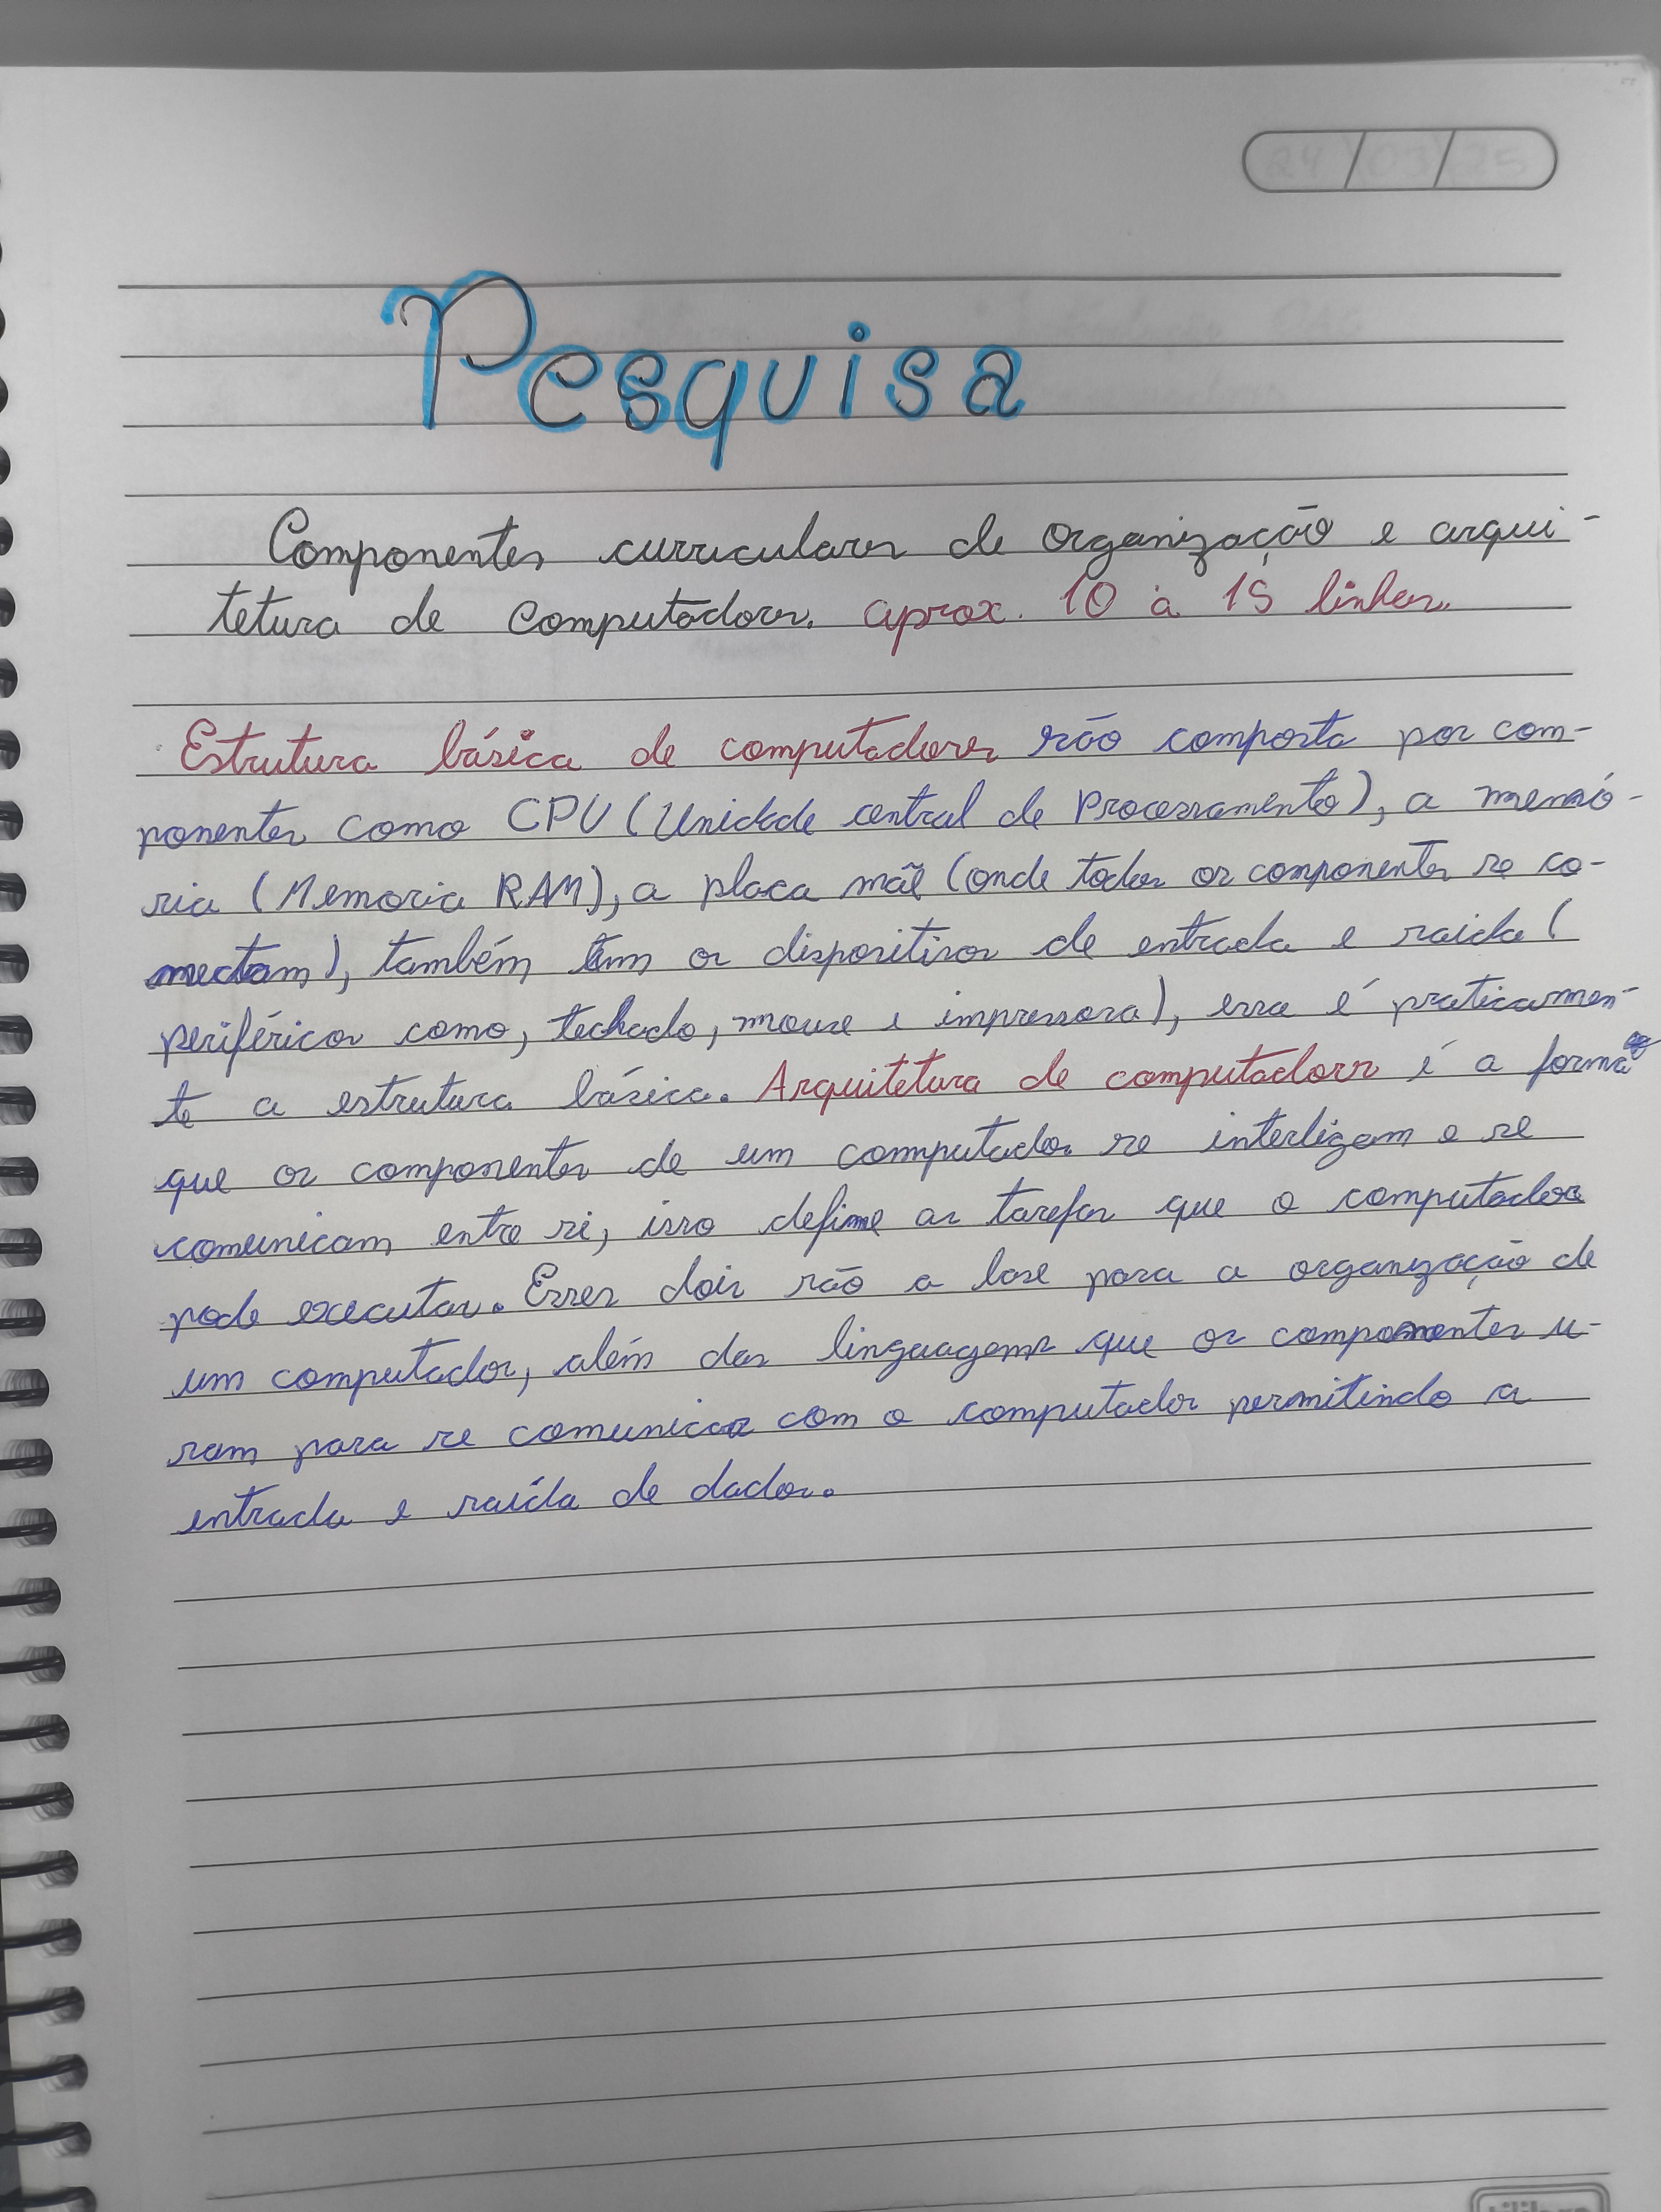 24/03/25
Pesquisa
Componentes curriculares de organização e arqui-
tetura de computadores. aprox. 10 à 15 linhas.
Estrutura básica de computadores são composta por com-
ponentes como CPU (Unidade central de Processamento), a memó-
ria (Memoria RAM), a placa mãe (onde todos os componentes se co-
nectam), também tem os dispositivos de entrada e saida (
periféricos como, teclado, mouse e impressora), essa é praticamen-
te a estrutura básica. Arquitetura de computadores é a forma
que os componentes de um computador se interligam e se
comunicam entre si, isso define as tarefas que o computador
pode executar. Esses dois são a base para a organização de
um computador, além das linguagens que os componentes u-
sam para se comunicar com o computador permitindo a
entrada e saída de dados.